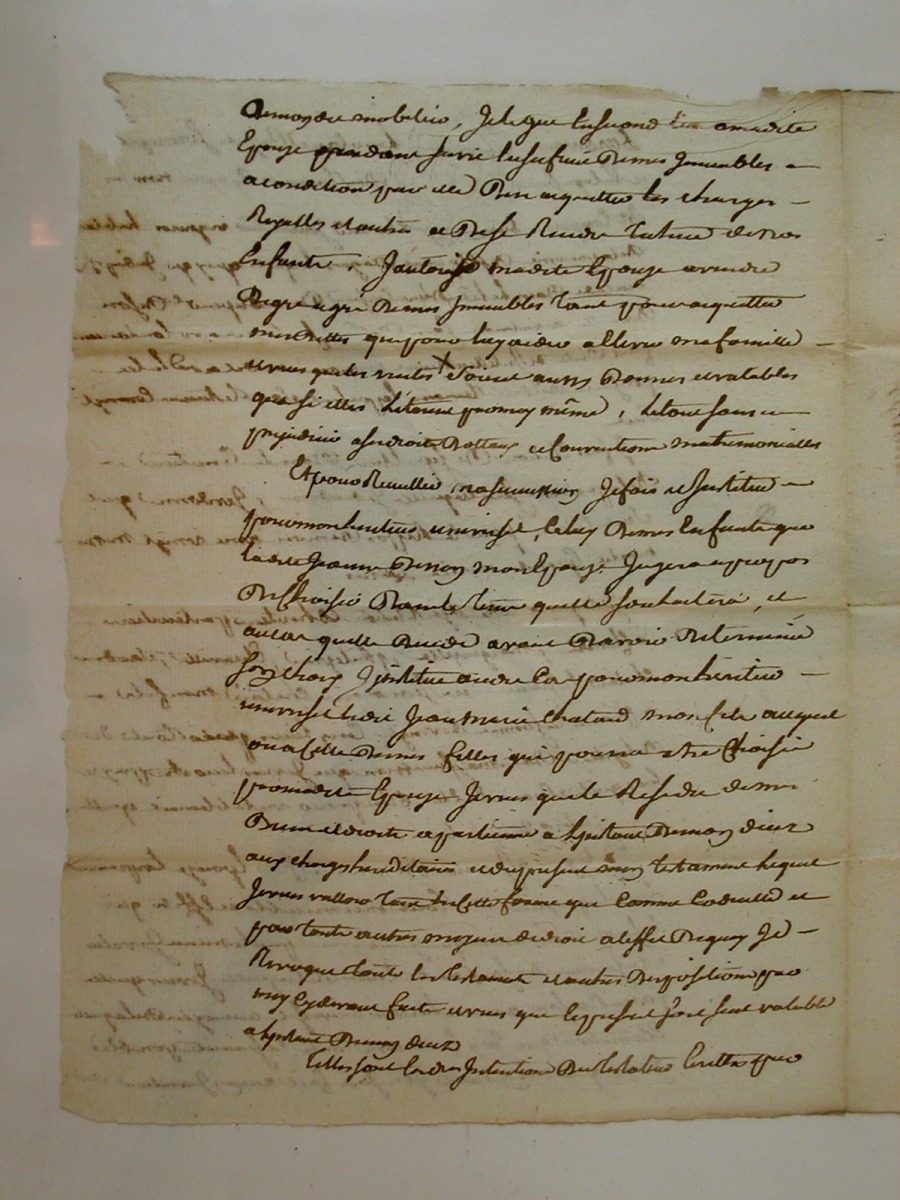 De mon dit mobilier, Je legue en second lieu a madite
Epouse pendant sa vie l'usufruit De mes Immeubles =
a condition par elle D'en acquitter les charges =
Royalles et autres et De se Rendre tutrice de nos
Enfants, J'autorise madite Epouse a vendre
De gre a gré De mes Immeubles tant pour acquitter
mes dettes que pour luy aider a Elever ma famille =
veux que les ventes X soient aussy Bonnes et valables
que si elles Etoient par moy même, le tout sans =
prejudice a ses droits Dottaux et Conventions matrimonialles
Et pour Recueillir ma succession Je fais et Institue =
pour mon heritier universel, Celuy De mes Enfants que
ladite Jeanne mon Epouse Jugera a propos
De Choisir Dans le tems quelle souhaitera, et
au cas quelle Decede avant D'avoir Determiné
son choix J'institue au dit Cas pour mon heritier =
universel ledit Jean Marie Chatard mon fils auquel
ou a Celle De mes filles qui pourra etre Choisie
par madite Epouse Je veux que le Residu de mes
Biens et droits apartienne a l'instant De mon dècez
aux charges hereditaires et du present mon testament lequel
Je veux valloir tant En Cette forme que Comme Codicille et
par toute autres moyens de droit a l'effet De quoy Je =
Revoque touts les testaments et autres Dispositions par
moy Cy devant faite et veux que le present soit seul valable
a l'instant De mon decez
Telles sont les dres Intentions Du testateur Ecrittes par